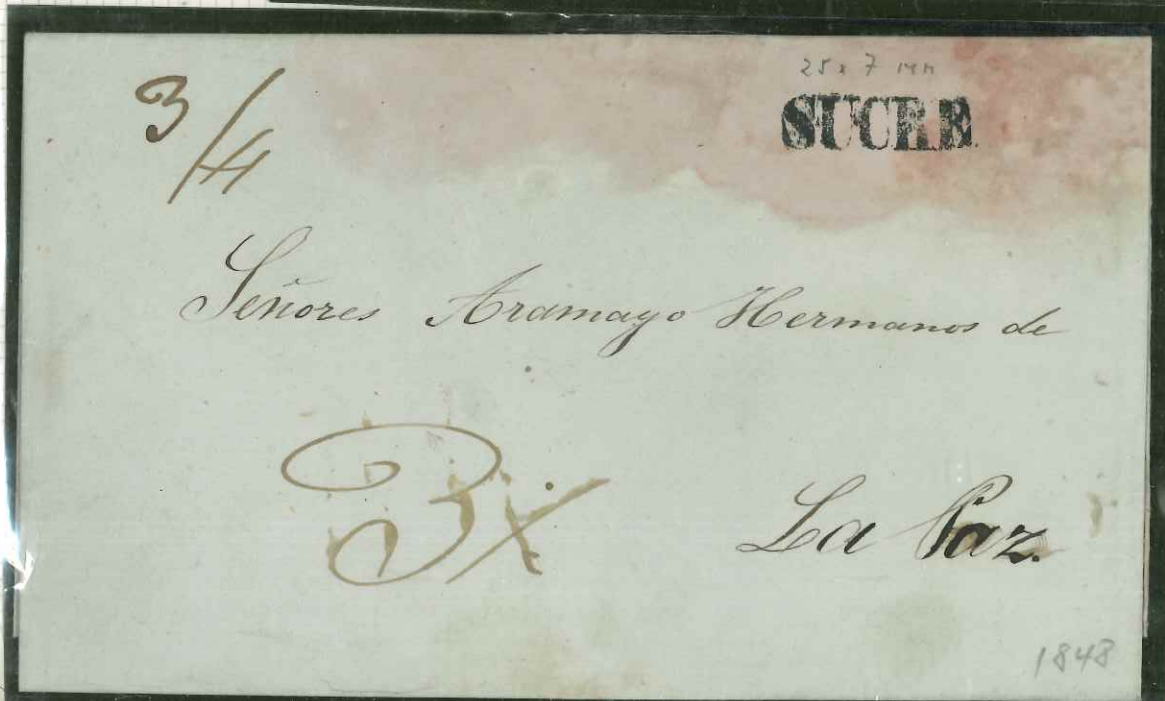 3/4
25 x 7 mm
SUCRE
Señores Aramayo Hermanos de
3x
La Paz.
1848